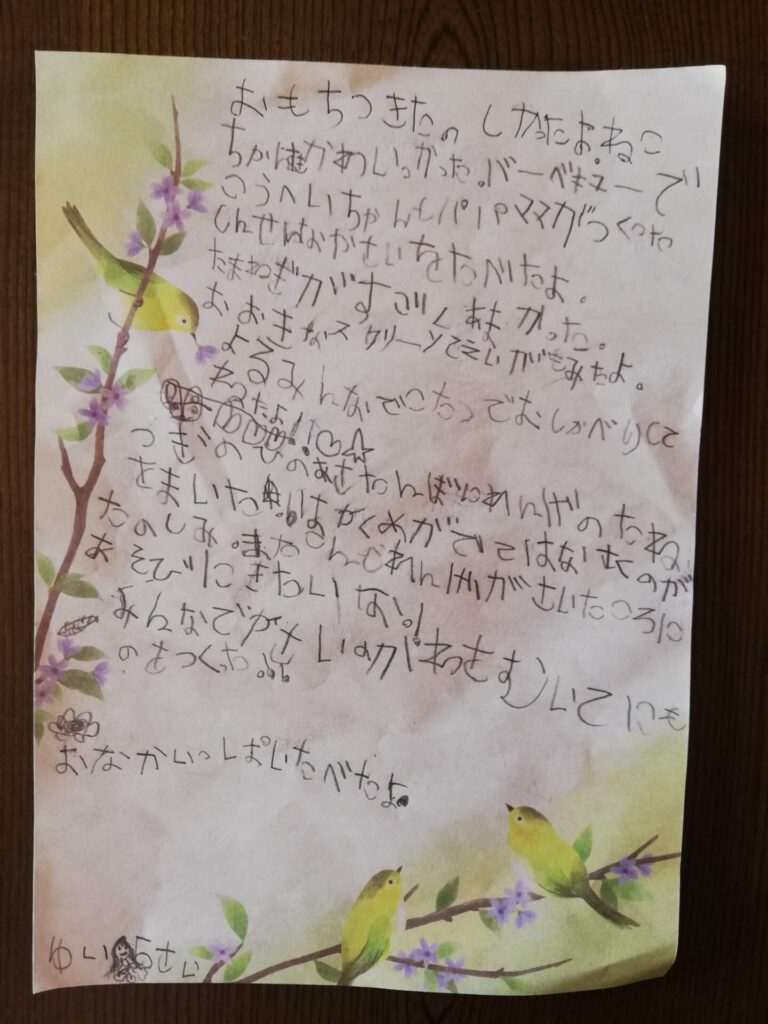 おもちつきたのしかったよ。ねこ
ちゃはかわいっかった。バーベキューで
こうへいちゃんもパパママがつくった
しんせんなおやさいをたべたよ。
たまねぎがすごくあまかった。
おおきなスクリーンでえいがもみたよ。
よるみんなでこたつでおしゃべりして
ねったよ!!♡☆
つぎのひのあさたんぼにれんげのたね
をまいた!はやくめがでてはながさくのが
たのしみ。またこんどれんげがさいたころに
あそびにきたいな!
みんなでがっせいのがわをむいてにも
のをつくった
おなかいっぱいたべたよ
ゆい 5さい